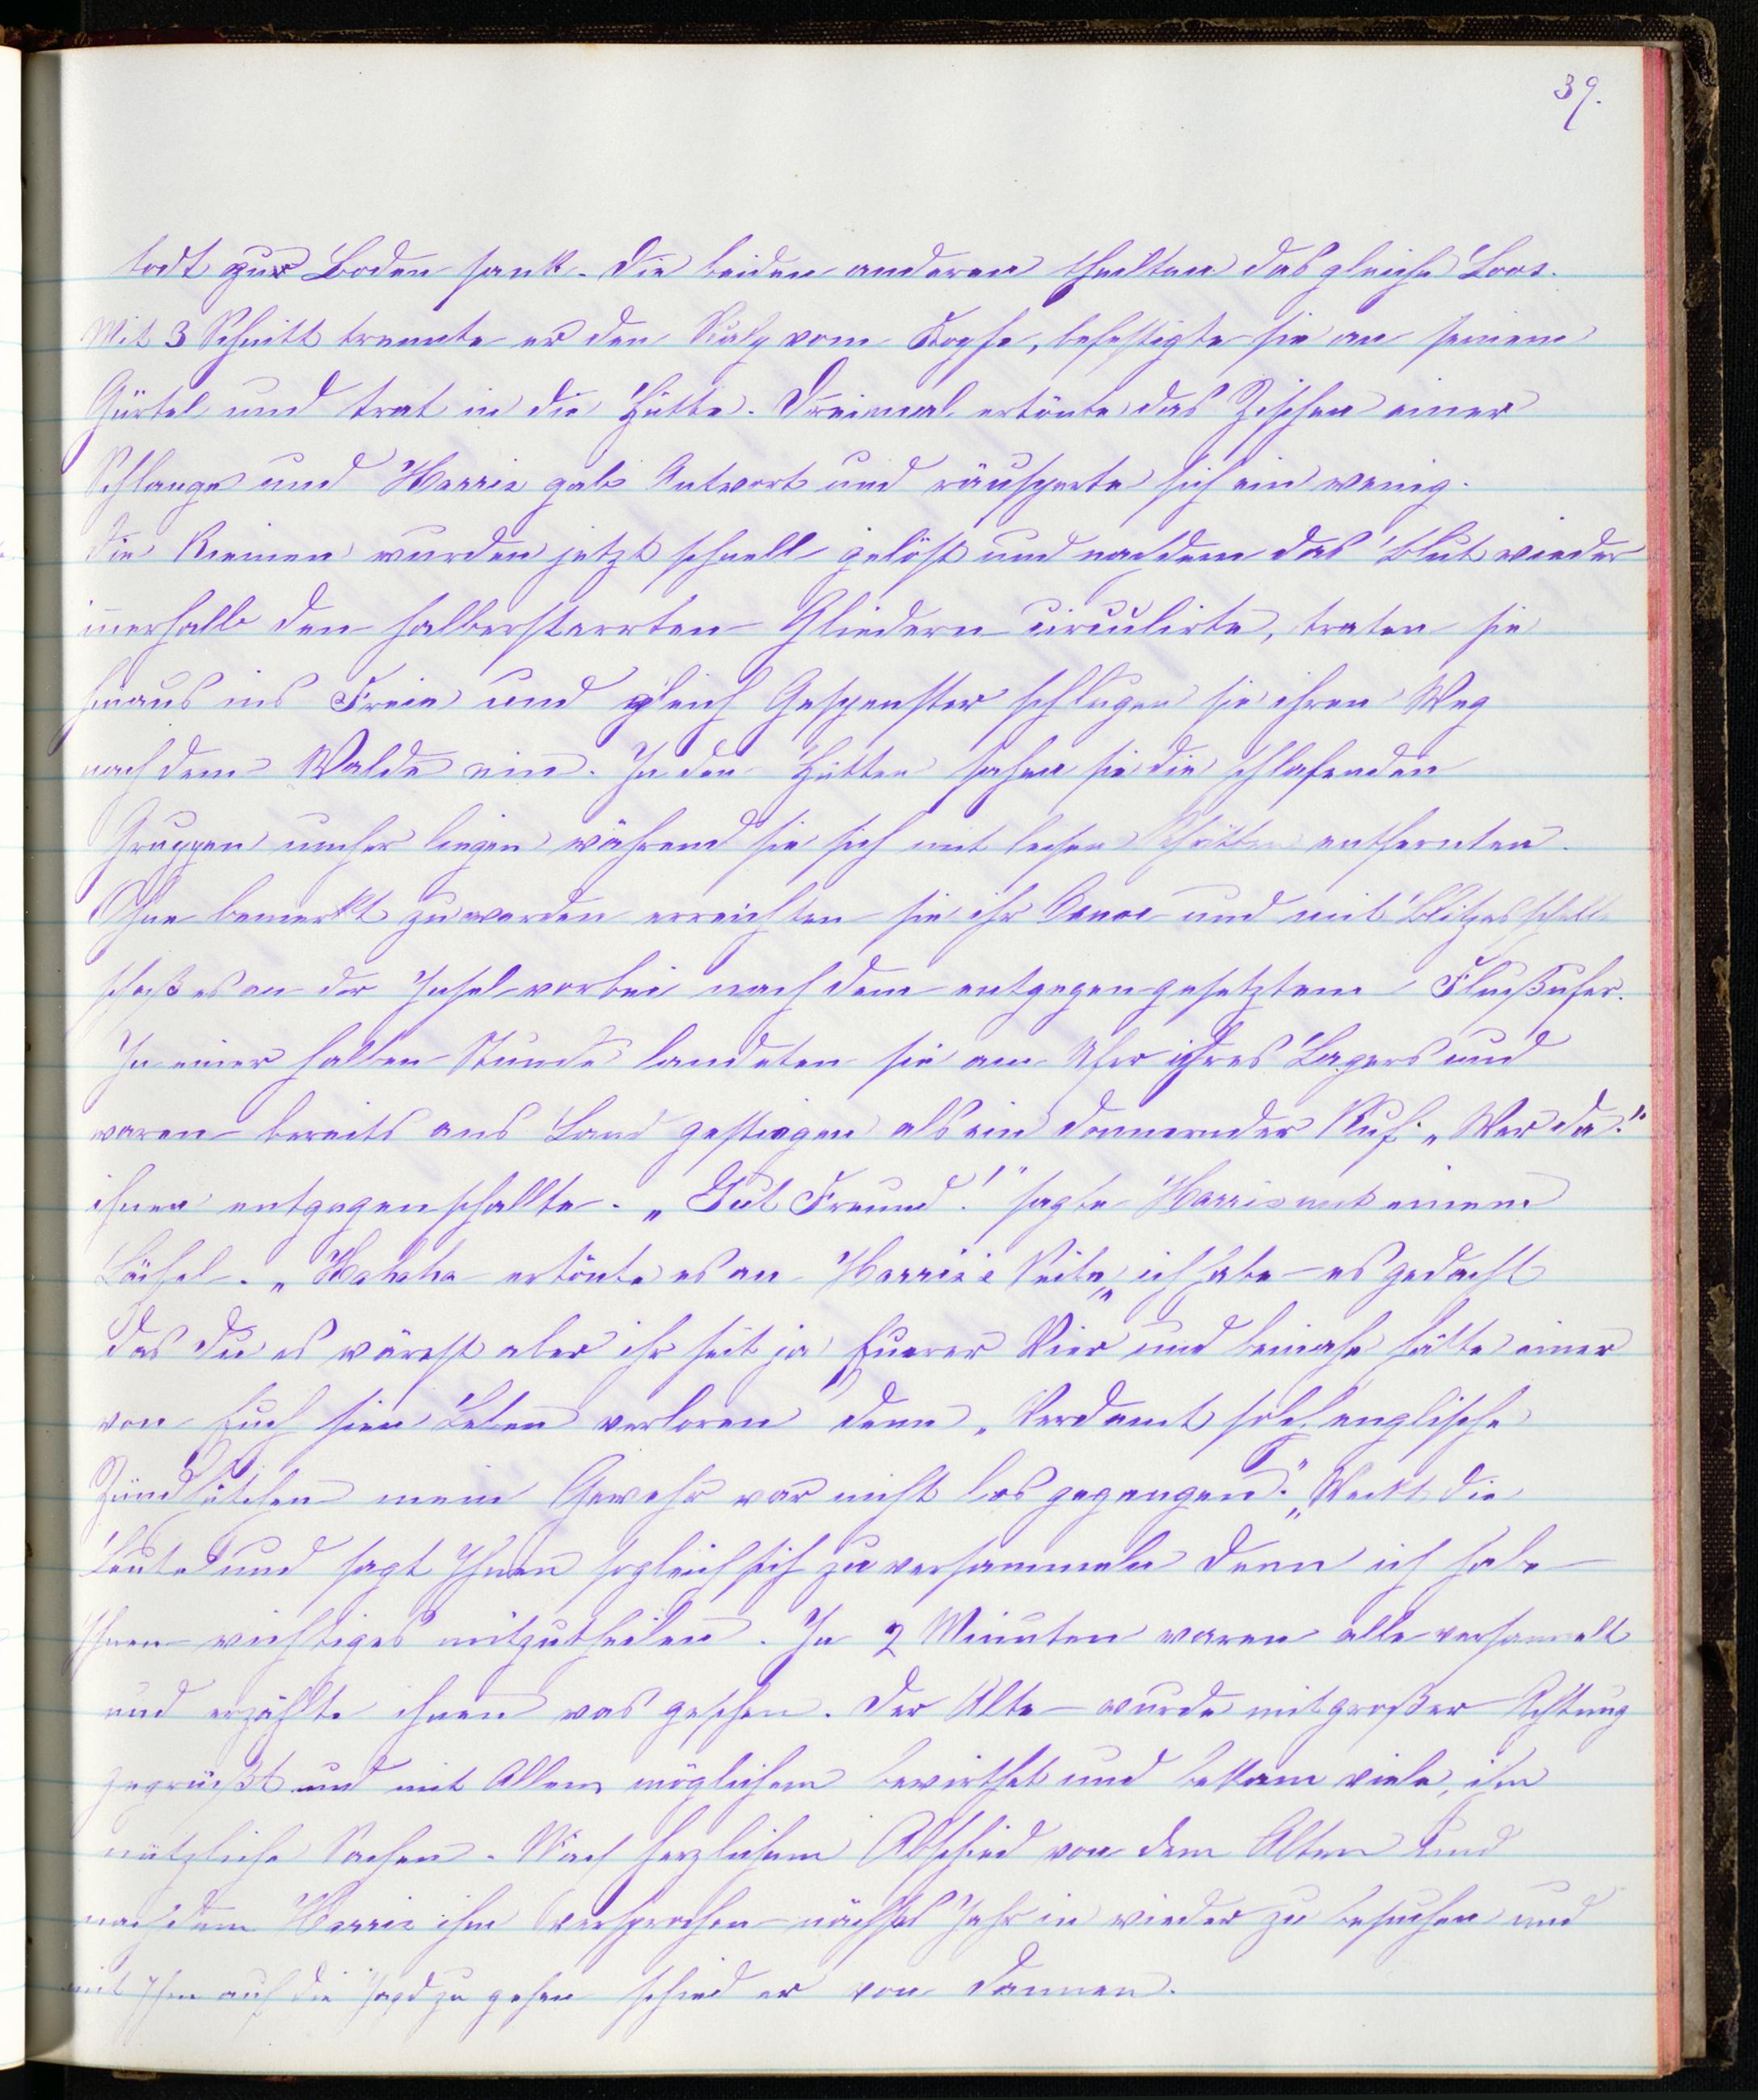 39.
todt zur Boden sank. Die beiden anderen theilten das gleiche Loos.
Mit 3 Schnitt trennte er den Scalp vom Kopfe, befestigte sie an seinem
Gürtel und trat in die Hütte. Dreimal ertönte das Zischen einer
Schlange und Harris gab Antwort und räusperte sich ein wenig.
Die Riemen wurden jetzt schnell gelöst und nachdem das Blut wieder
innerhalb den halberstarrten Gliedern circulirte, traten sie
hinaus ins Freie und gleich Gespenster schlugen sie ihren Weg
nach dem Walde ein. In den Hütten sahen sie die schlafenden
Gruppen umher liegen während sie sich mit leisen Schritten entfernten.
Ohne bemerkt zu werden erreichten sie ihr Canoe und mit Blitzesschnelle
schoß es an der Insel vorbei nach dem entgegengesetztem Flußufer.
In einer halben Stunde landeten sie am Ufer ihres Lagers und
waren bereits ans Land gestiegen als ein donnernder Ruf: „Wer da!"
ihnen entgegenschallte. „Gut Freund!" sagte Harris mit einem
Lächel. „Hahaha ertönte es an Harris's Seite „ich habe es gedacht
das du es wärest aber ihr seit ja Euerer Vier und beinahe hätte einer
von Euch sien Leben verloren denn „Verdamt solch englische
Zündhütchen mein Gewehr war nicht los gegangen". „Weckt die
Leute und sagt Ihnen sogleich sich zu versammeln denn ich habe
Ihnen wichtiges mitzutheilen. In 2 Minuten waren alle versammelt
und erzählte ihnen was geschen. Der Alte wurde mit großer Achtung
gegrüßt und mit Allem möglichem bewirthet und bekam viele, ihm
nützliche Sachen. Nach herzlichem Abschied von dem Alten und
nachdem Harris ihm versprochen nächstes Jahr in wieder zu besuchen und
mit Ihm auf die Jagd zu gehen schied er von dannen.